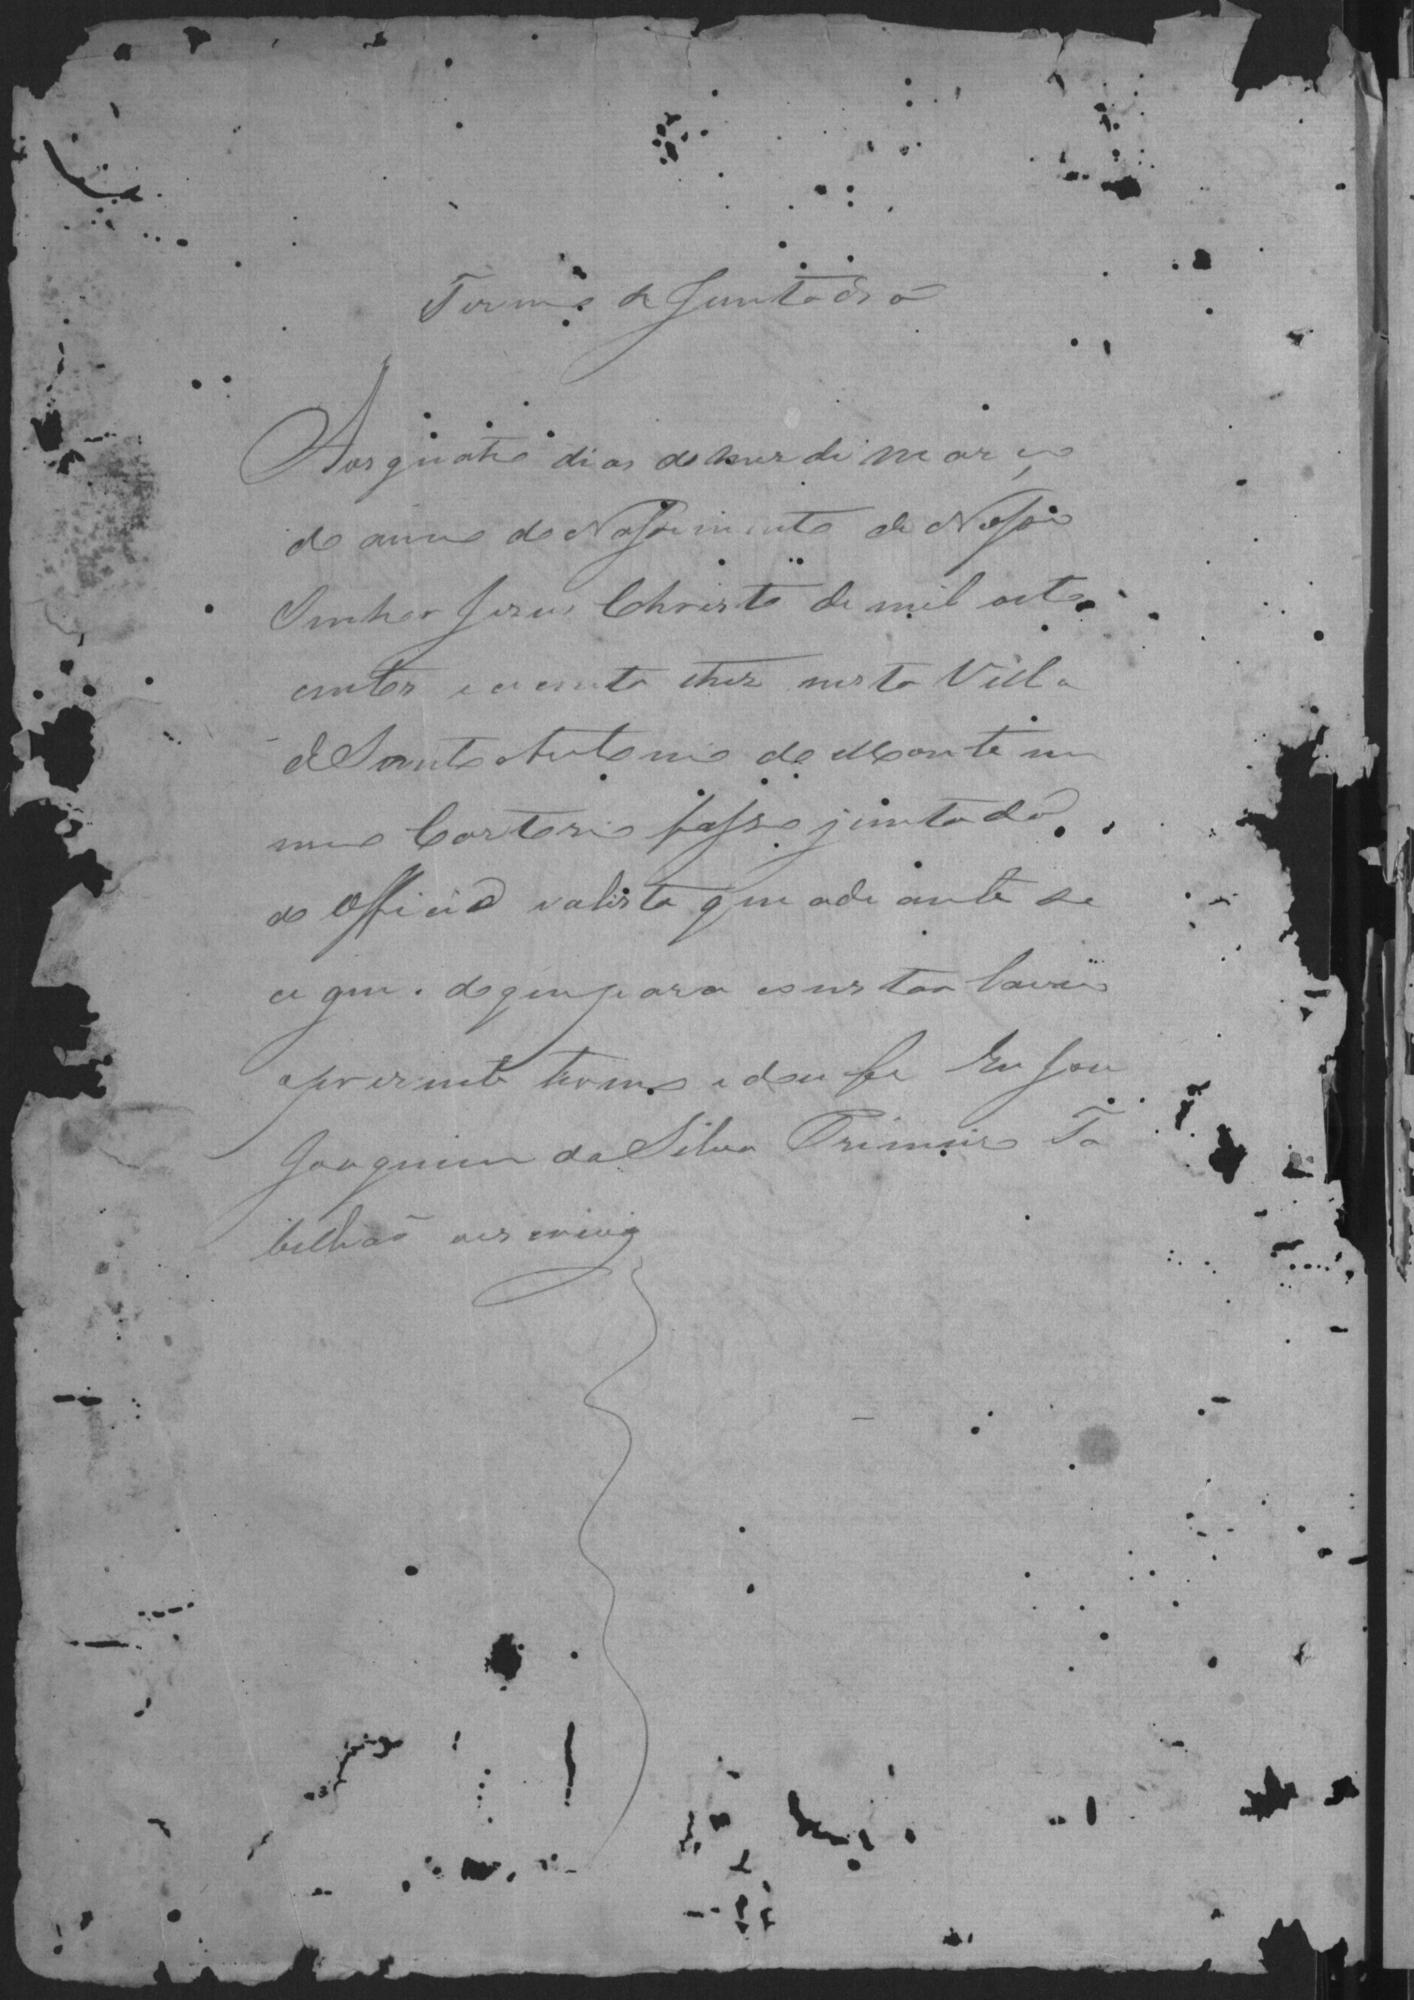 Termo de Juntada
Aos quatro dias do mes de março
do anno do Nassimento de Nosso
Senhor Jesus Christo de mil oito
centos e oitenta e tres nesta Villa
de Santo Antonio do Monte em
meo Cartorio fasso juntada
do Officio e a lista que adiante se
segue. do que para constar lavro
o presente termo e dou fe Eu José
Joaquim da Silva Primeiro Ta
bellião escrevi